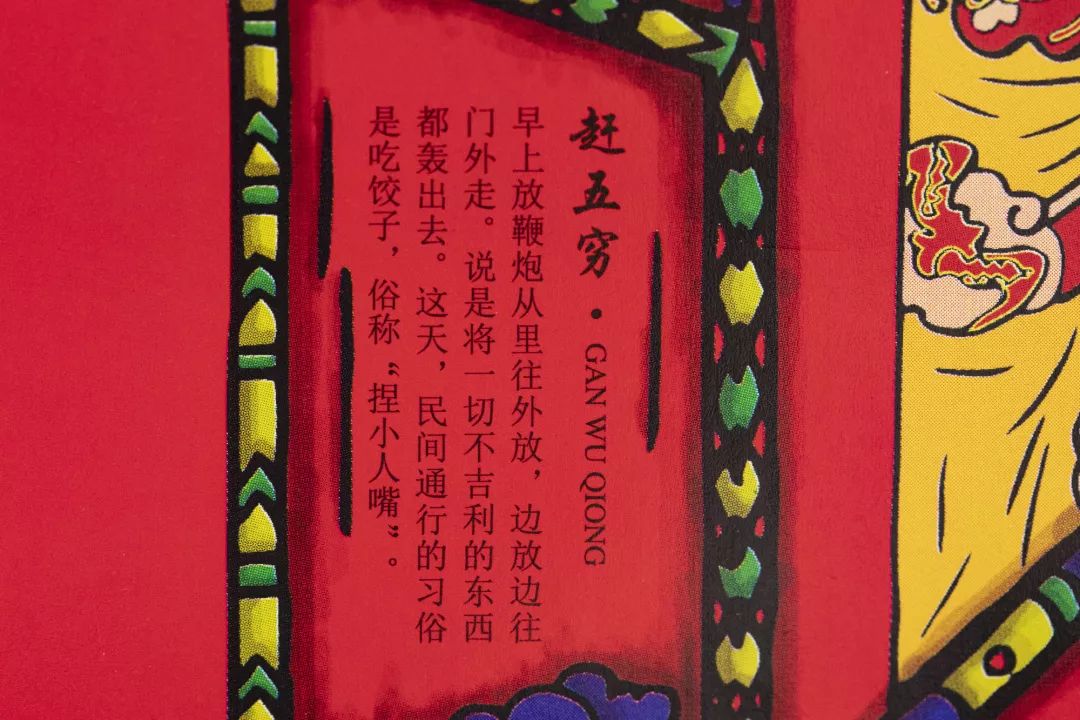 赶五穷·GAN WU QIONG
早上放鞭炮从里往外放，边放边往
门外走。说是将一切不吉利的东西
都轰出去。这天，民间通行的习俗
是吃饺子，俗称“捏小人嘴”。